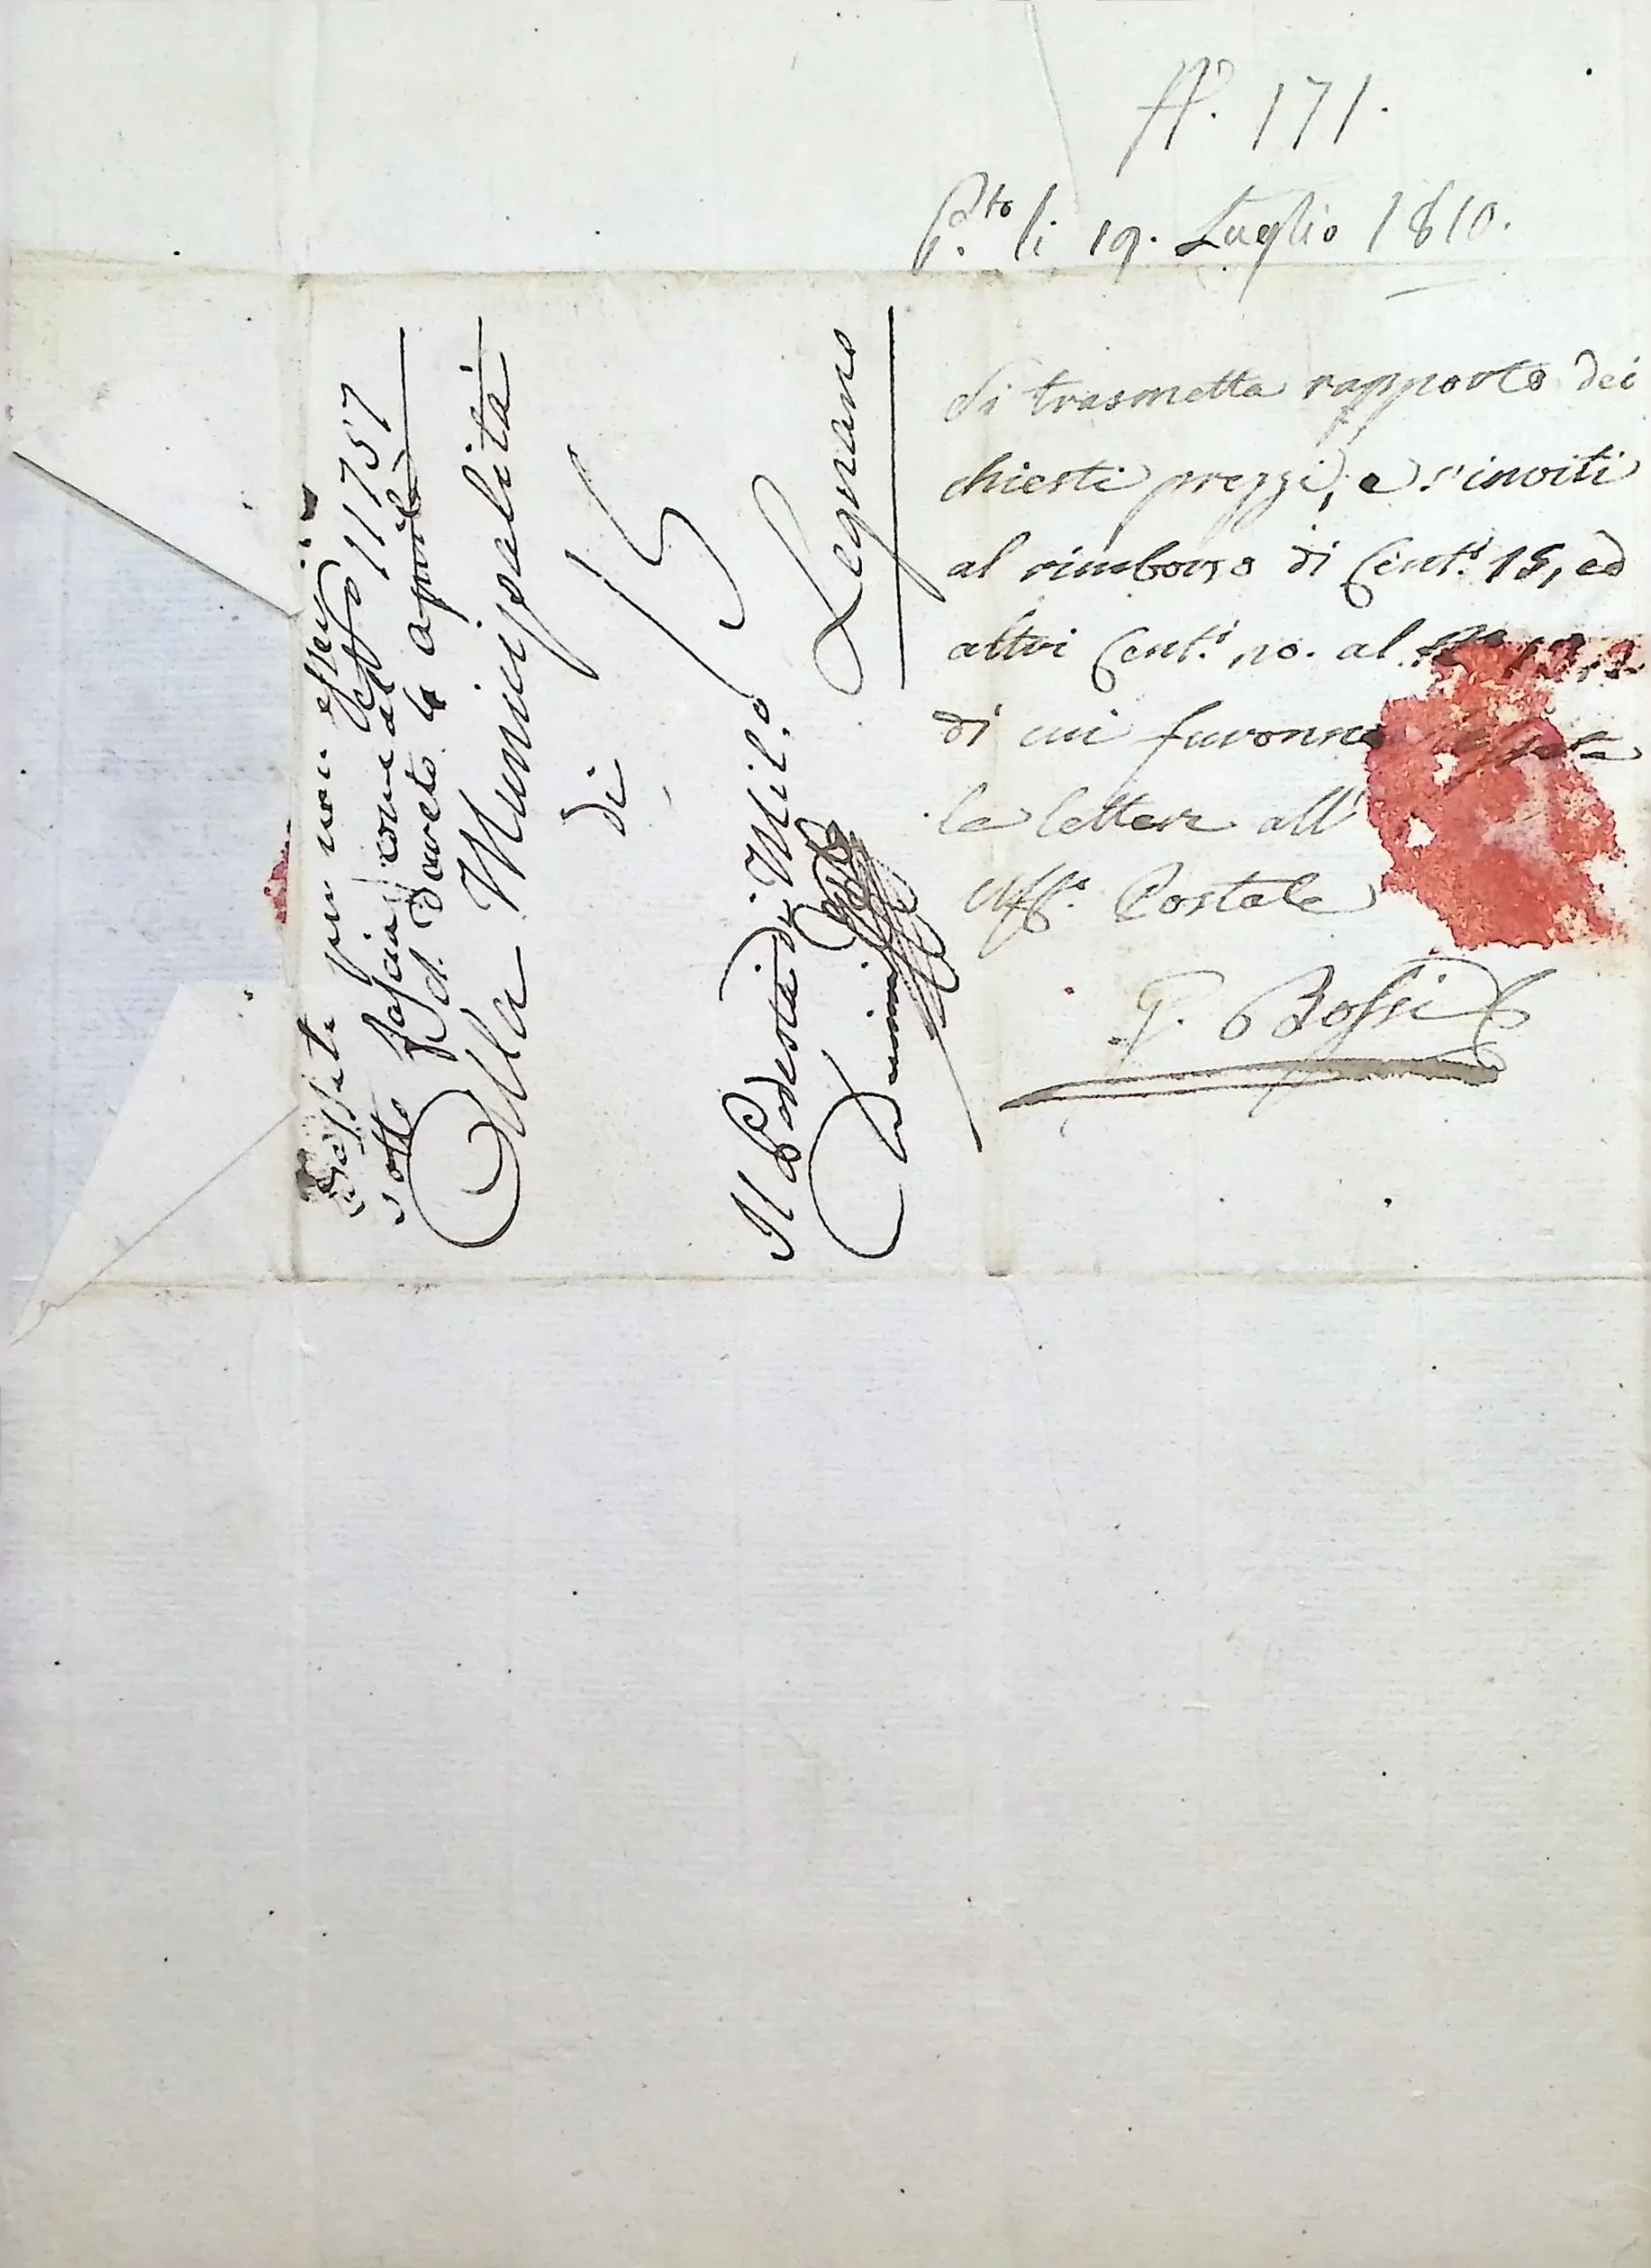 N.° 171.
P.to li 19. Luglio 1810.
Si trasmetta rapporto dei
chiesti prezzi, e s'inviti
al rimborso di Cent.i 15, ed
altri Cent.i 10. al
di cui furonno
le lettere all'
Uff.o Postale
G. Bossi
per non esservi
sotto fascia come al N.o 11757
d. Decreto 4 aprile
Alla Municipalità
di
Legnano
Il Podestà di Mil.o